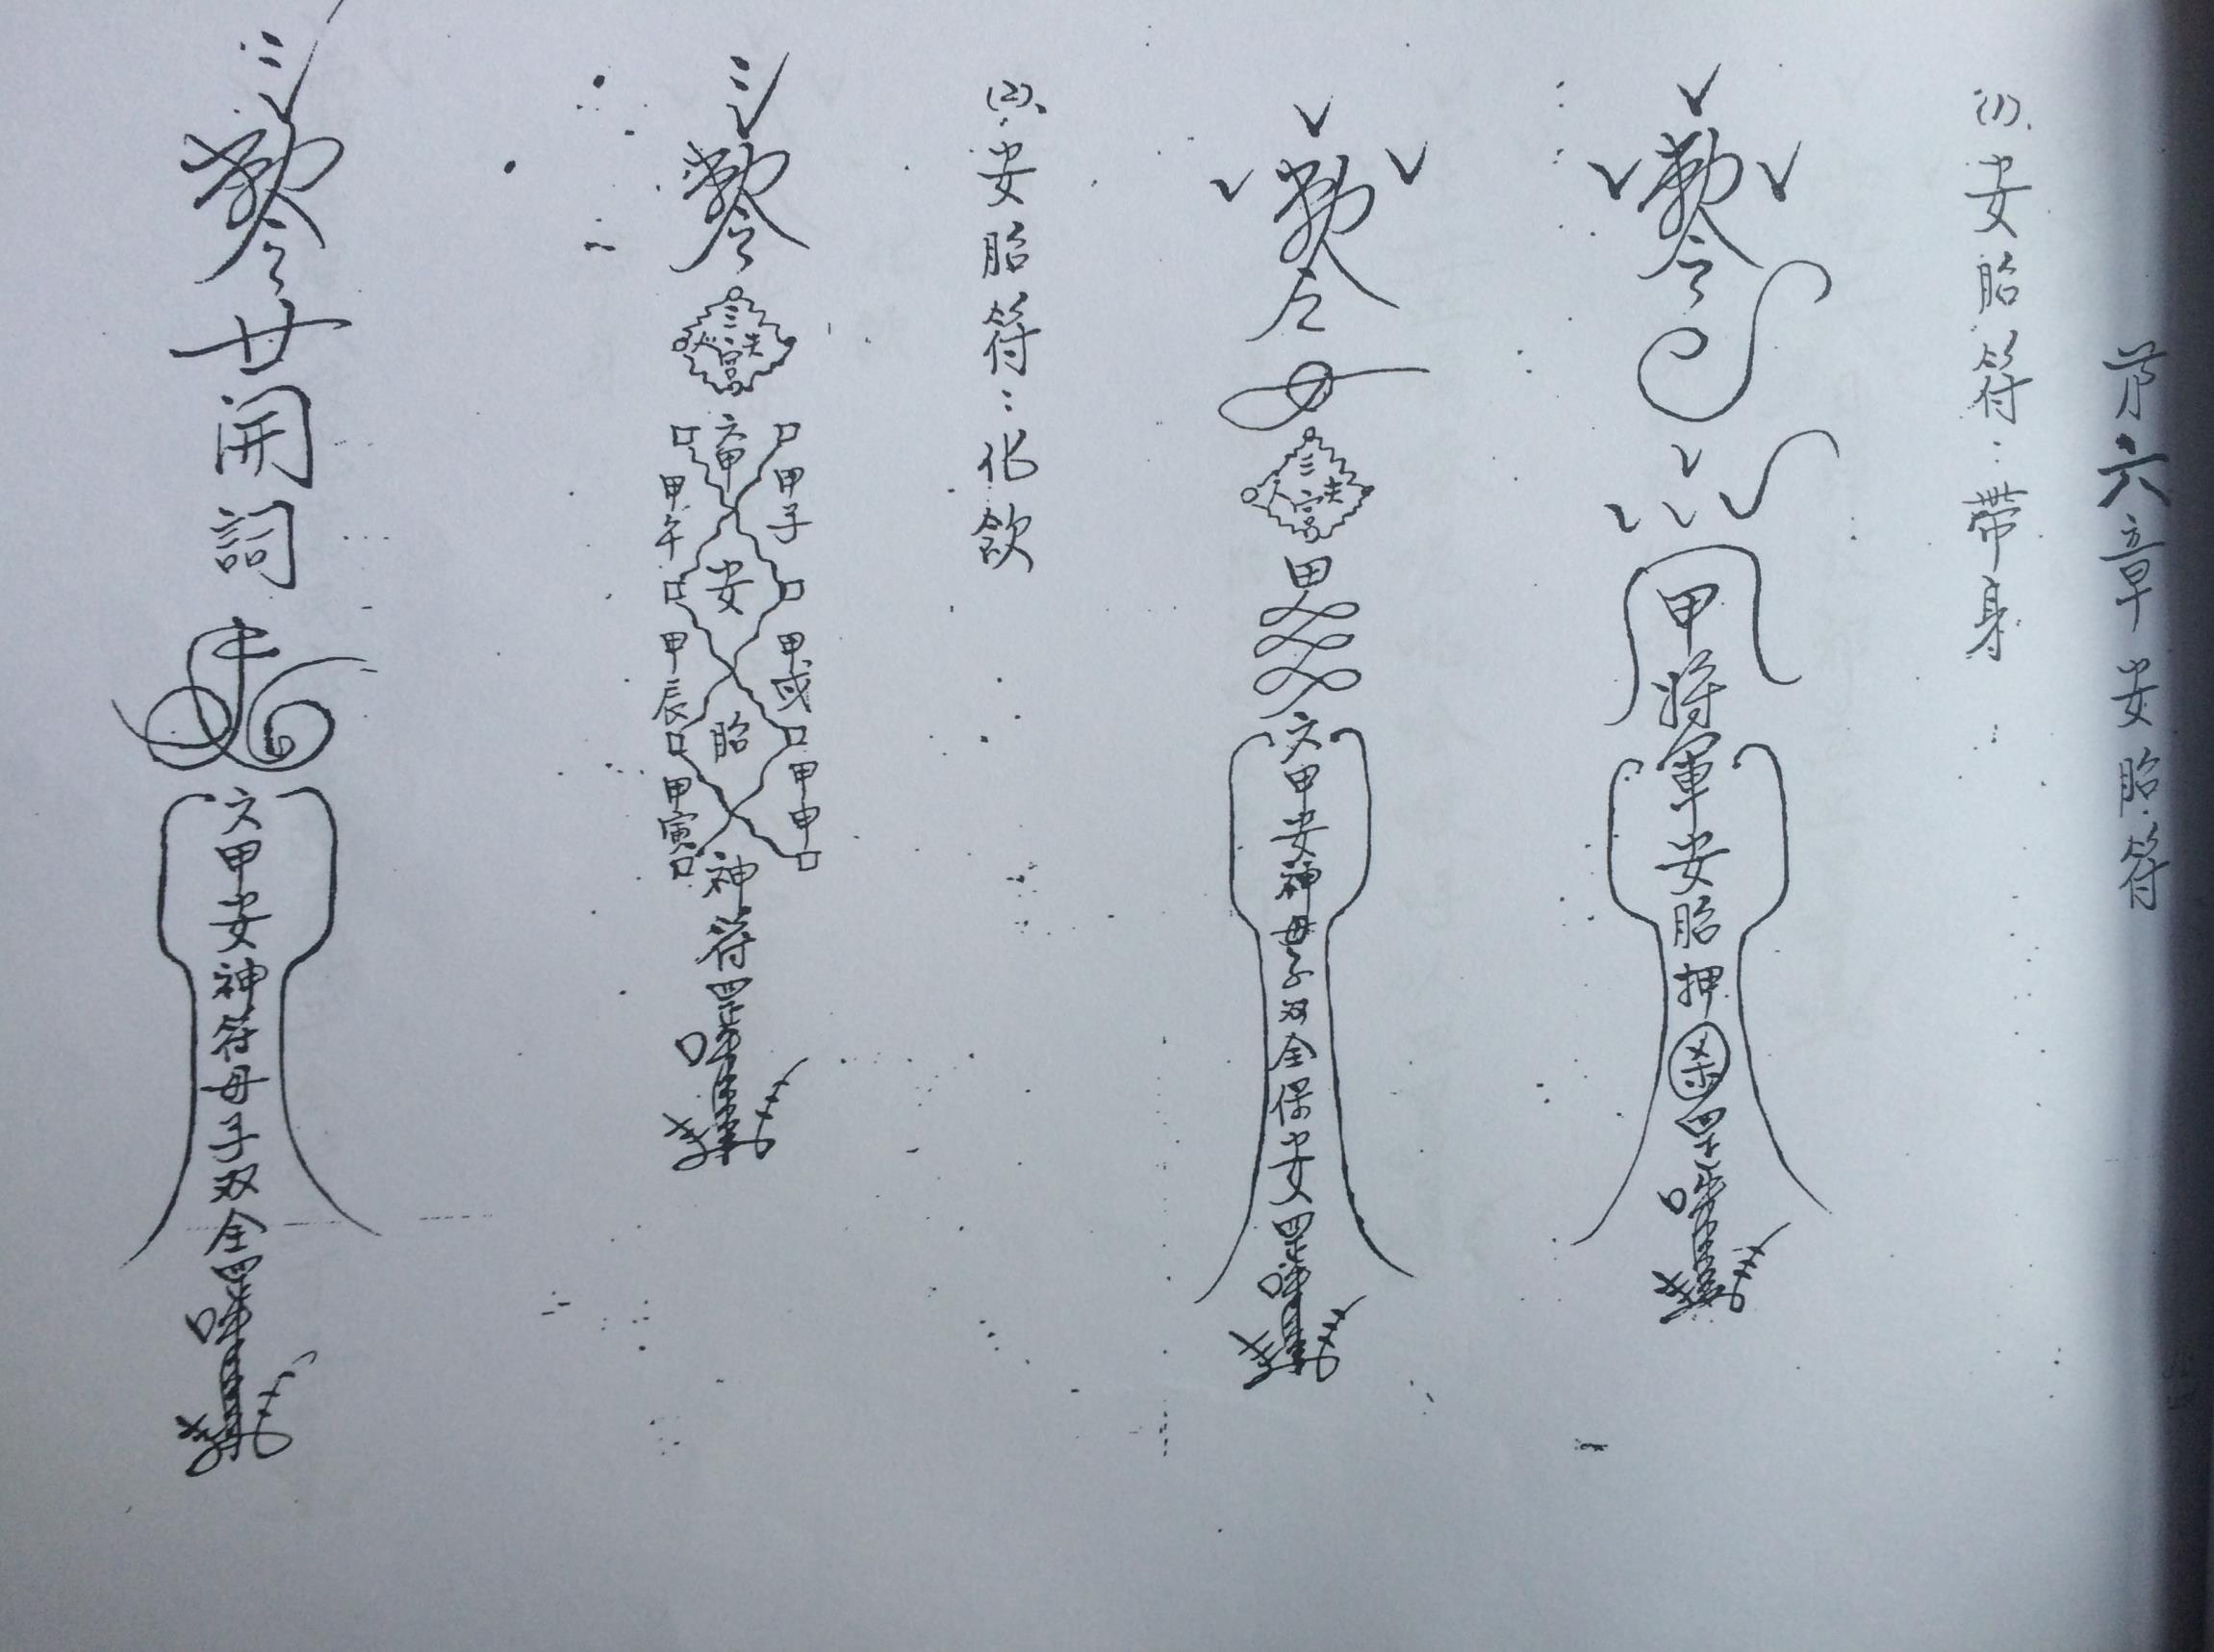 第六章安胎符
(1).安胎符：帶身
勅令
甲將軍安胎押煞罡
勅令
三
甲
六甲安神母子双全保安罡
(2).安胎符：化飲
勅令
三
六甲安胎神符罡
甲子
甲戌
甲申
甲午
甲辰
甲寅
勅令
廿開詞
六甲安神符母子双全罡